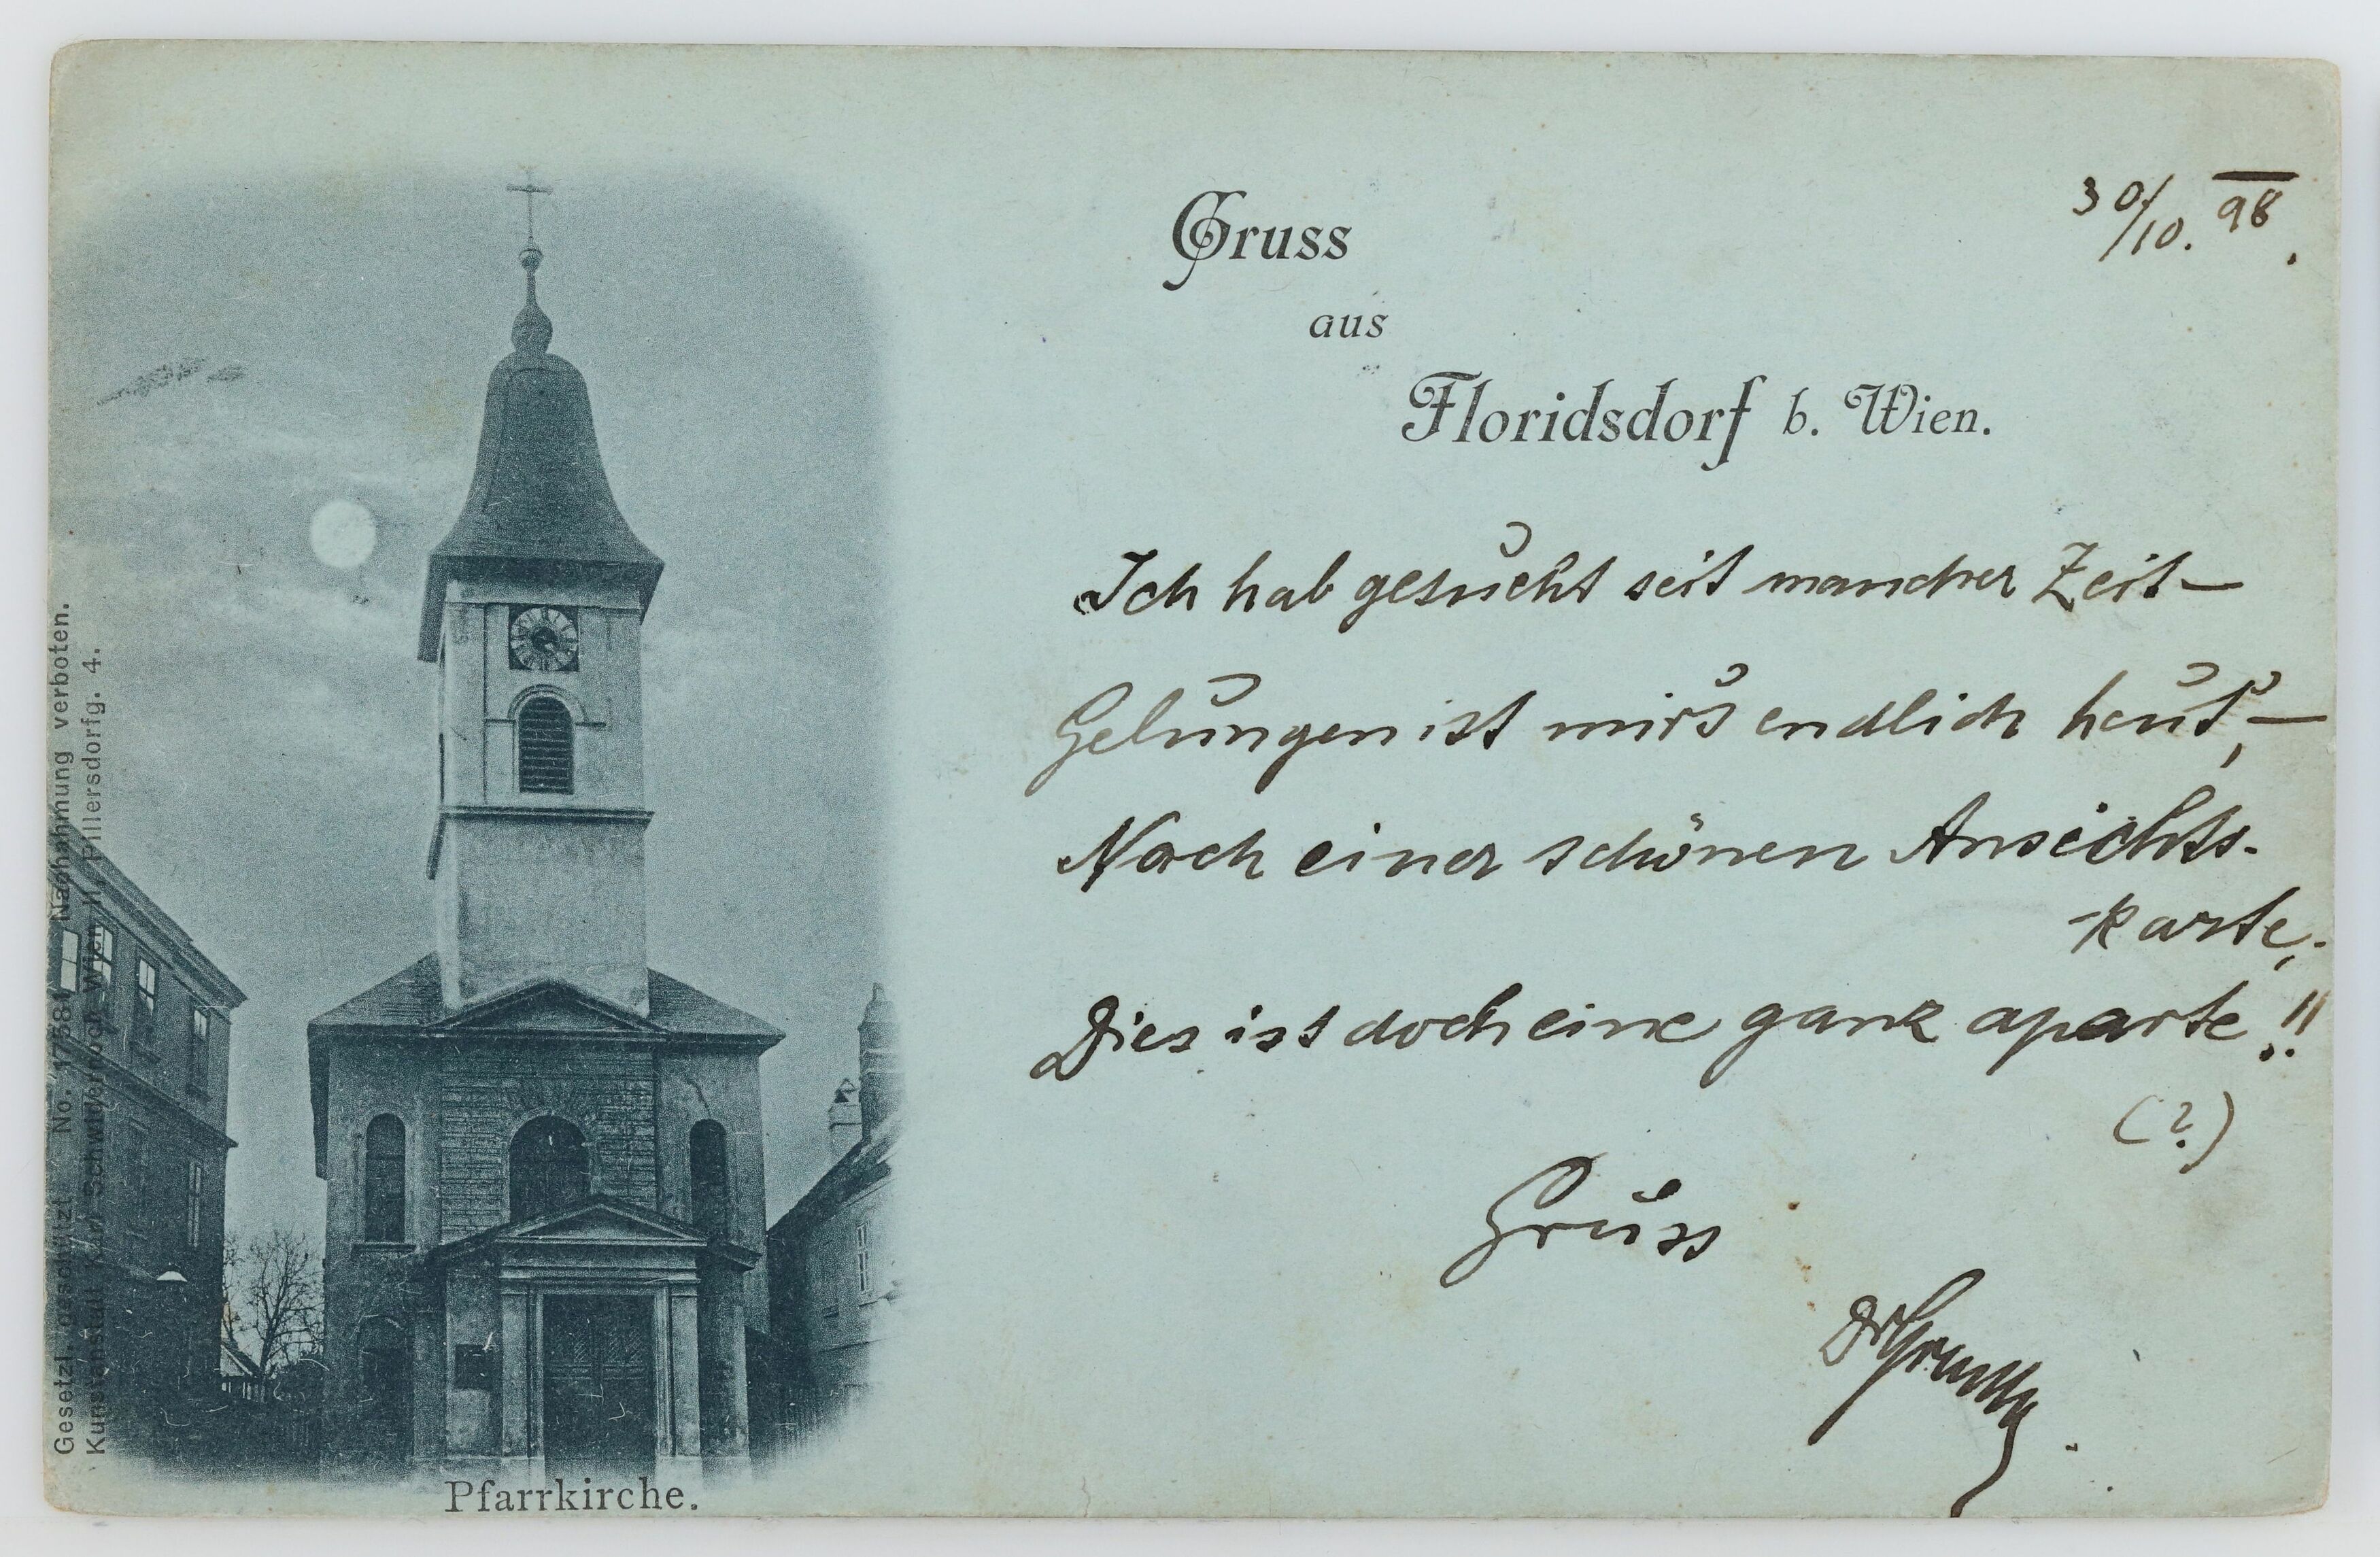 Gruss
aus
Floridsdorf b. Wien.
30/10. 98.
Ich hab gesucht seit mancher Zeit –
Gelungen ist mirs endlich heut, –
Nach einer schönen Ansichts-
karte,
Dies ist doch eine ganz aparte!!
(?)
Gruss
Gesetzl. geschützt No. Nachahmung verboten.
Kunstanstalt Karl Schwidernoch Wien II, Pillersdorfg. 4.
Pfarrkirche.